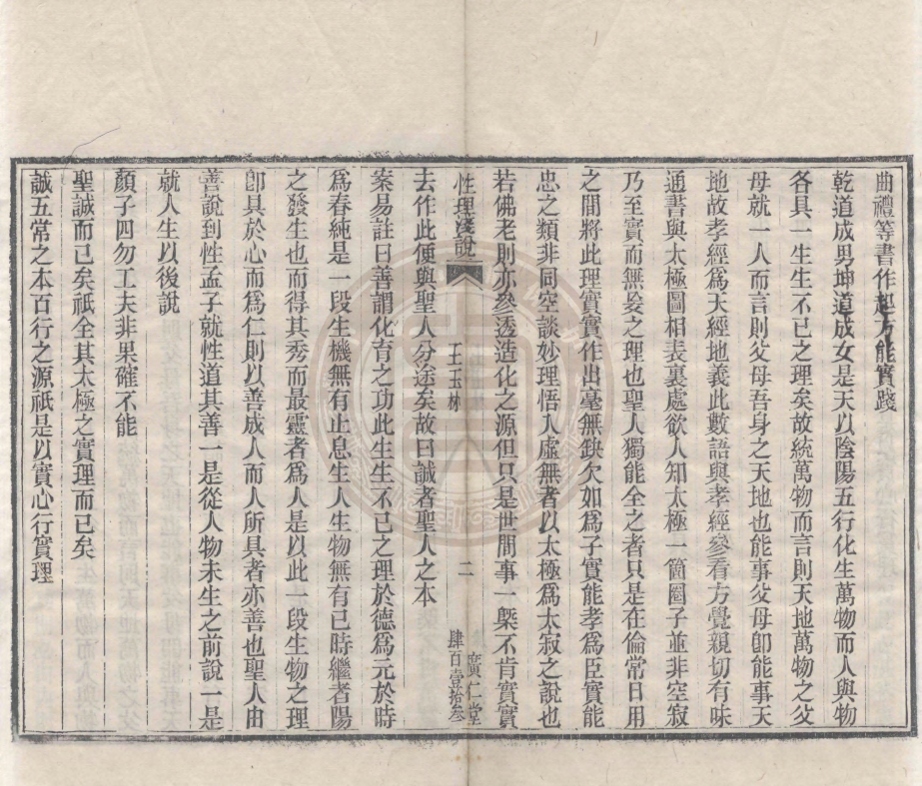 曲禮等書作起方能實踐
乾道成男坤道成女是天以陰陽五行化生萬物而人與物
各具一生生不已之理矣故統萬物而言則天地萬物之父
母就一人而言則父母吾身之天地也能事父母卽能事天
地故孝經爲天經地義此數語與孝經參看方覺親切有味
通書與太極圖相表裏處欲人知太極一箇圈子並非空寂
乃至實而無妄之理也聖人獨能全之者只是在倫常日用
之間將此理實實作出毫無缺欠如爲子實能孝爲臣實能
忠之類非同空談妙理悟入虛無者以太極爲太寂之說也
若佛老則亦參透造化之源但只是世間事一槩不肯實實
去作此便與聖人分途矣故曰誠者聖人之本
性理淺說
二
廣仁堂
肆百壹拾叁
案易註曰善謂化育之功此生生不已之理於德爲元於時
爲春純是一段生機無有止息生人生物無有已時繼者陽
之發生也而得其秀而最靈者爲人是以此一段生物之理
卽具於心而爲仁則以善成人而人所具者亦善也聖人由
善說到性孟子就性道其善一是從人物未生之前說一是
就人生以後說
顏子四勿工夫非果確不能
聖誠而已矣祇全其太極之實理而已矣
誠五常之本百行之源祇是以實心行實理